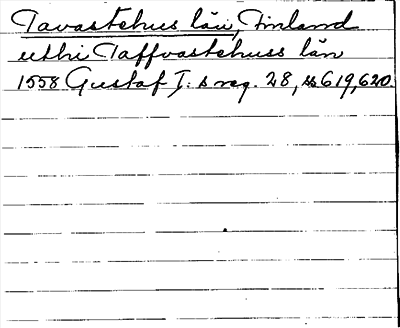 Tavastehus län, Finland
uthi Taffvastehuss län
1558 Gustaf I:s reg. 28, ss 619, 620.